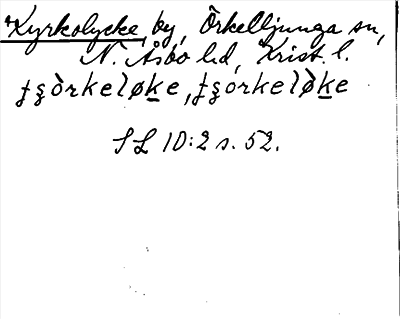 Kyrkolycke, by, Örkelljunga sn,
N. Åsbo hd, Krist. l.
ʈʂòrkeløḵe, ʈʂorkelø̀ḵe
SL 10:2 s. 52.